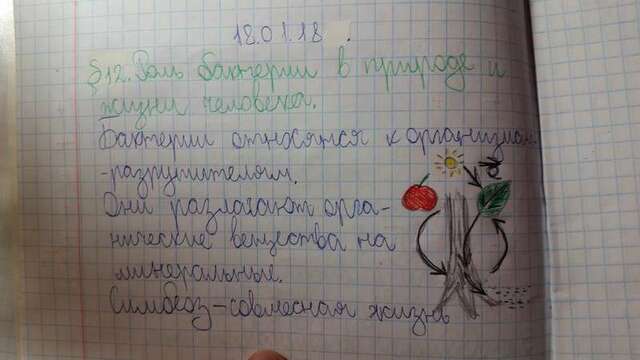 18.01.18.
§12. Роль бактерий в природе и
жизни человека.
Бактерии относятся к организмам
-разрушителям.
Они разлагают орга-
нические вещества на
минеральные.
Симбеоз-совместная жизнь